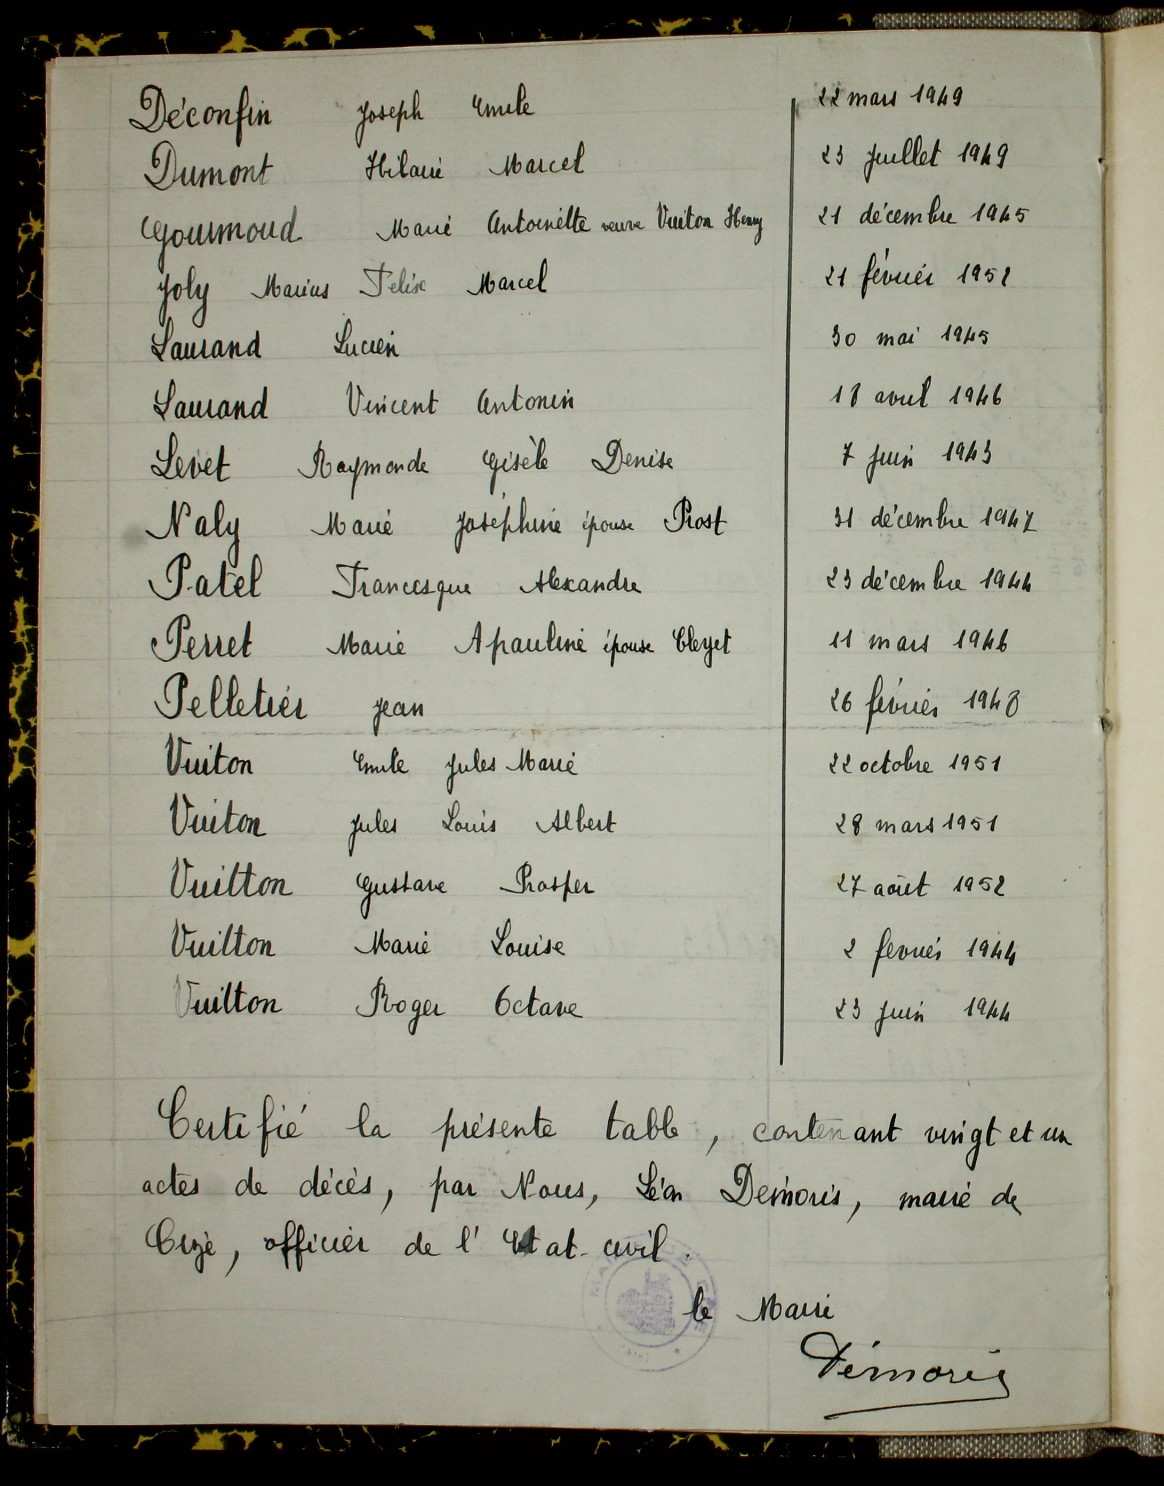 Déconfin Joseph Emile 22 mars 1949
Dumont Hilaire Marcel 23 Juillet 1949
Gourmoud Marie Antoinette veuve Vuiton Henry 21 décembre 1945
Joly Marius Felix Marcel 21 février 1952
Laurand Lucien 30 mai 1945
Laurand Vincent Antonin 18 avril 1946
Levet Raymonde Gisèle Denise 7 Juin 1943
Naly Marie Joséphine épouse Prost 31 décembre 1947
Patel Francesque Alexandre 23 décembre 1944
Perret Marie Apauline épouse Cleyet 11 mars 1946
Pelletier Jean 26 février 1948
Vuiton Emile Jules Marie 22 octobre 1951
Vuiton Jules Louis Albert 28 mars 1951
Vuitton Gustave Prosper 27 août 1952
Vuitton Marie Louise 2 fevrier 1944
Vuitton Roger Octave 23 Juin 1944
Certifié la présente table, contenant vingt et un
actes de décès, par Nous, Léon Démoris, maire de
Cize, officier de l'Etat-civil.
le Maire
Démoris